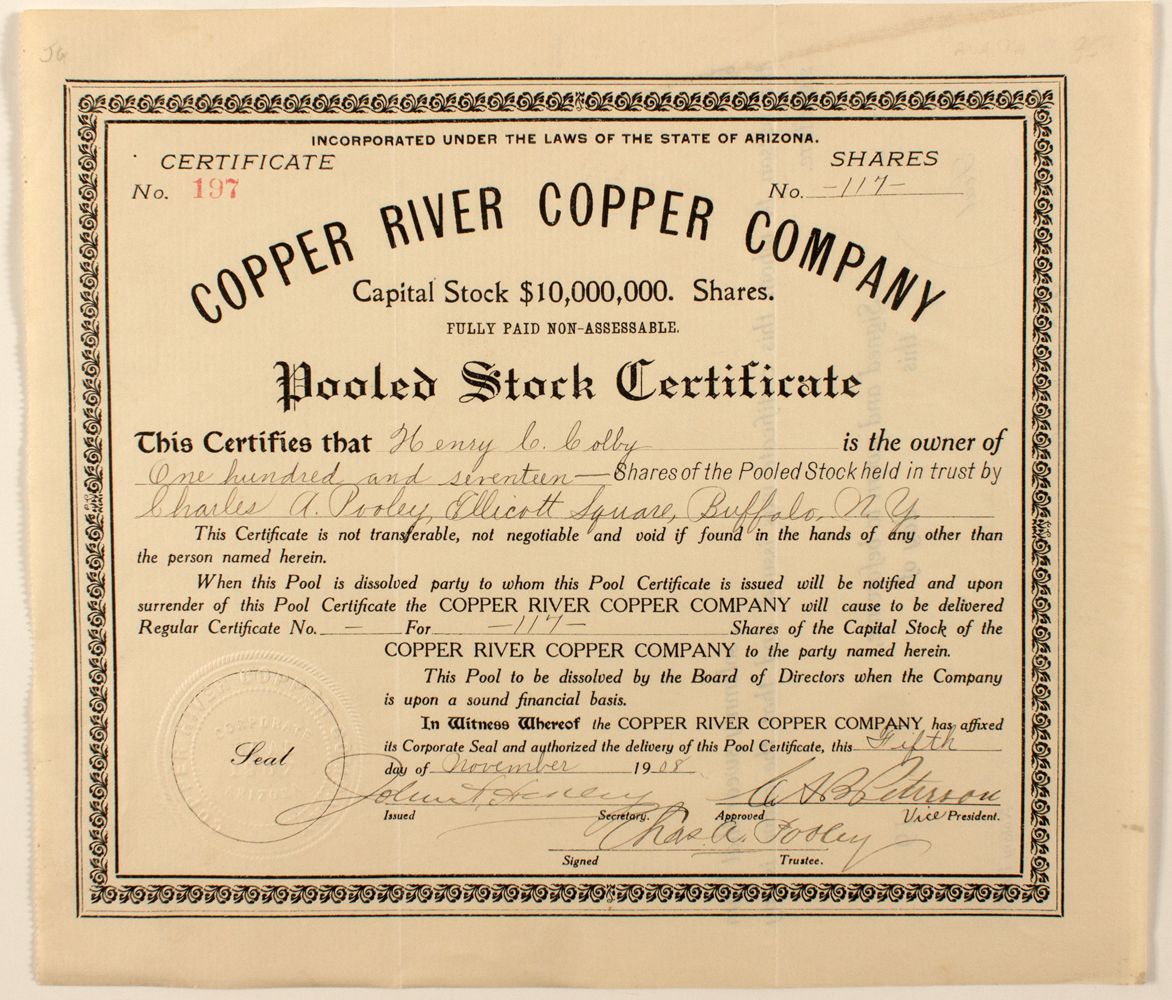 JG
INCORPORATED UNDER THE LAWS OF THE STATE OF ARIZONA.
CERTIFICATE
No. 197
SHARES
No. -117-
COPPER RIVER COPPER COMPANY
Capital Stock $10,000,000. Shares.
FULLY PAID NON-ASSESSABLE.
Pooled Stock Certificate
This Certifies that Henry C. Colby is the owner of
One hundred and seventeen — Shares of the Pooled Stock held in trust by
Charles A. Pooley, Ellicott Square, Buffalo, N. Y.
This Certificate is not transferable, not negotiable and void if found in the hands of any other than
the person named herein.
When this Pool is dissolved party to whom this Pool Certificate is issued will be notified and upon
surrender of this Pool Certificate the COPPER RIVER COPPER COMPANY will cause to be delivered
Regular Certificate No. — For -117- Shares of the Capital Stock of the
COPPER RIVER COPPER COMPANY to the party named herein.
This Pool to be dissolved by the Board of Directors when the Company
is upon a sound financial basis.
In Witness Whereof the COPPER RIVER COPPER COMPANY has affixed
its Corporate Seal and authorized the delivery of this Pool Certificate, this Fifth
day of November 1908
CORPORATE
Seal
C A B Peterson
Issued Secretary. Approved Vice President.
Chas. A. Pooley
Signed Trustee.